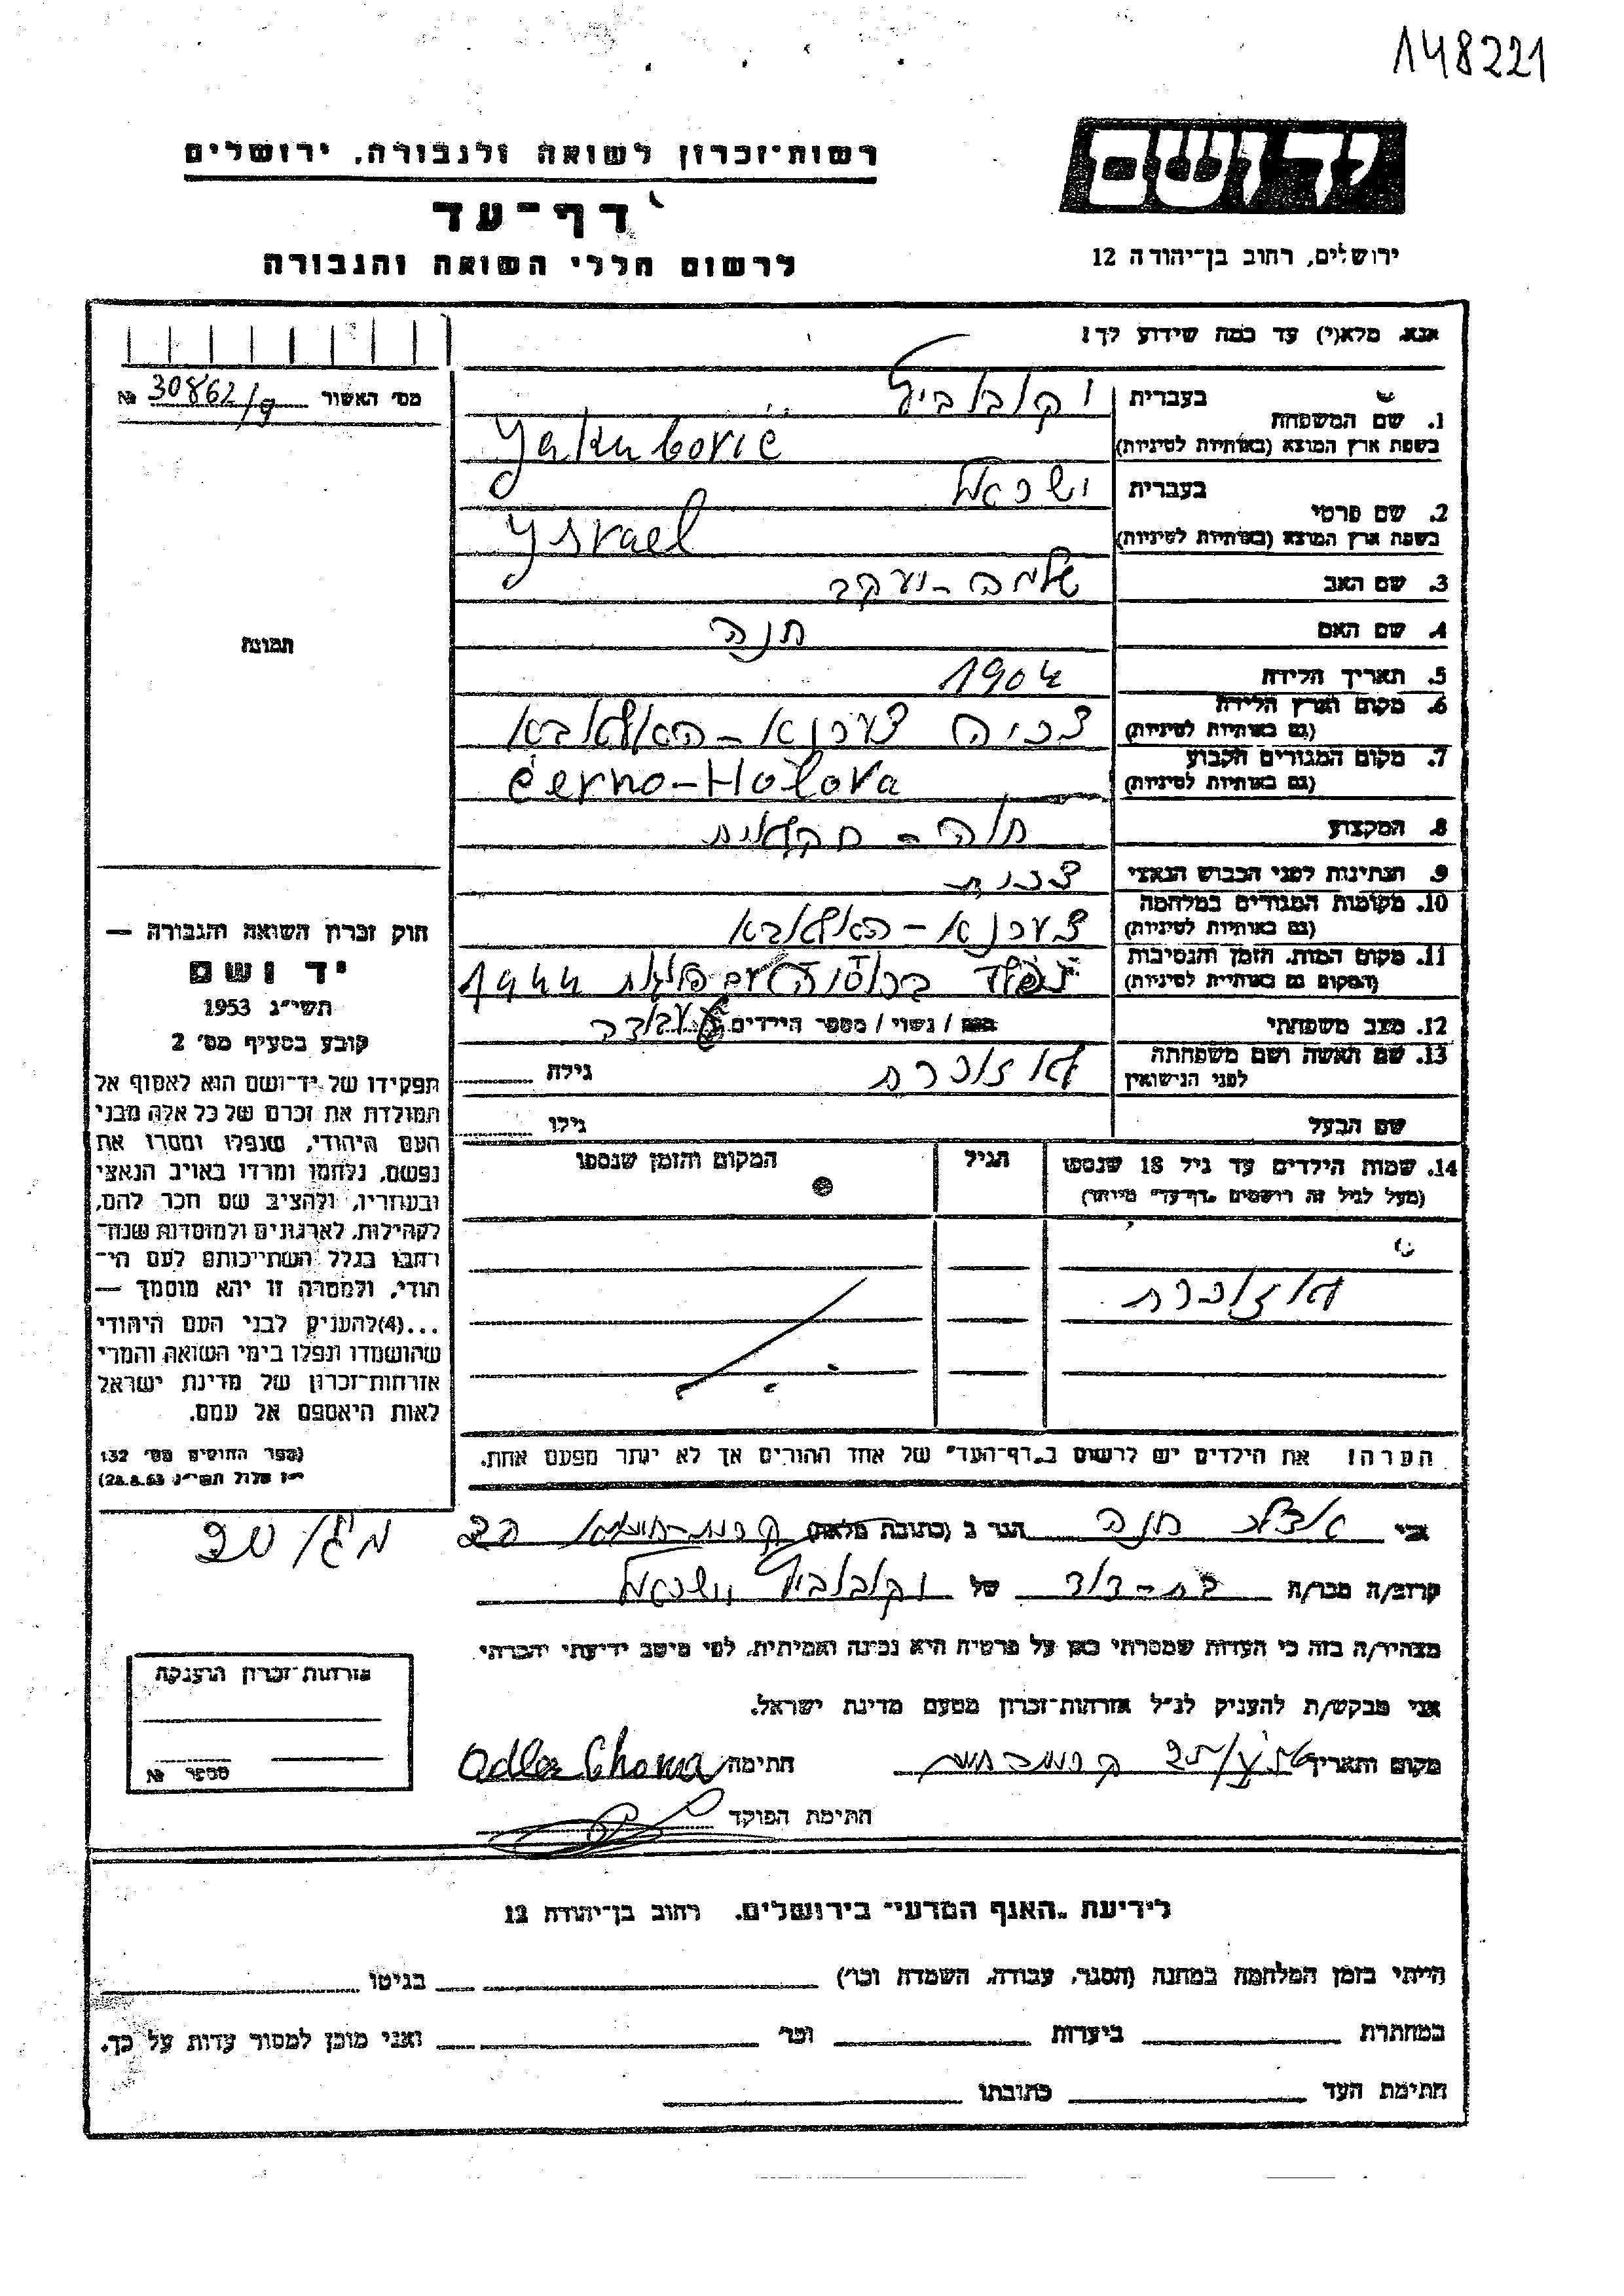 148221
רשות־זכרון לשואה ולגבורה, ירושלים
דף־עד
לרשום חללי השואה והגבורה
יד ושם
ירושלים, רחוב בן־יהודה 12
אנא, מלא(י) עד כמה שידוע לך!
מס׳ האשור 30862/9 №
1. שם המשפחה
בעברית יקובוביץ
בשפת ארץ המוצא (באותיות לטיניות) Yakubovič
2. שם פרטי
בעברית ישראל
בשפת ארץ המוצא (באותיות לטיניות) Ysrael
3. שם האב שלמה-יעקב
4. שם האם חנה
5. תאריך הלידה 1904
6. מקום וארץ הלידה
(גם באותיות לטיניות) צ׳כיה
7. מקום המגורים הקבוע
(גם באותיות לטיניות) černo-Holova
8. המקצוע
9. הנתינות לפני הכבוש הנאצי צ׳כית
10. מקומות המגורים במלחמה
(גם באותיות לטיניות)
11. מקום המות, הזמן והנסיבות
(המקום גם באותיות לטיניות) 1944
12. מצב משפחתי רווק / נשוי / מספר הילדים
13. שם האשה ושם משפחתה
לפני הנישואין לא זוכרת גילה
שם הבעל גילו
14. שמות הילדים עד גיל 18 שנספו
(מעל לגיל זה רושמים „דף־עד״ מיוחד)
הגיל
המקום והזמן שנספו
לא זוכרת
הערה: את הילדים יש לרשום ב„דף־העד״ של אחד ההורים אך לא יותר מפעם אחת.
תמונה
חוק זכרון השואה והגבורה —
יד ושם
תשי״ג 1953
קובע בסעיף מס׳ 2
תפקידו של יד־ושם הוא לאסוף אל
המולדת את זכרם של כל אלה מבני
העם היהודי, שנפלו ומסרו את
נפשם, נלחמו ומרדו באויב הנאצי
ובעוזריו, ולהציב שם וזכר להם,
לקהילות, לארגונים ולמוסדות שנח־
רבו בגלל השתייכותם לעם הי־
הודי, ולמטרה זו יהא מוסמך —
...(4) להעניק לבני העם היהודי
שהושמדו ונפלו בימי השואה והמרי
אזרחות־זכרון של מדינת ישראל
לאות היאספם אל עמם.
(ספר החוקים מס׳ 132
י״ז אלול תשי״ג 28.8.53)
אני אדלר חנה הגר ב (כתובת מלאה)
קרוב/ה מכר/ה בת-דוד של יקובוביץ ישראל
מצהיר/ה בזה כי העדות שמסרתי כאן על פרטיה היא נכונה ואמיתית, לפי מיטב ידיעתי והכרתי
אני מבקש/ת להעניק לנ״ל אזרחות־זכרון מטעם מדינת ישראל.
מקום ותאריך חתימה Adler Chana
חתימת הפוקד
אזרחות־זכרון הוענקה
מספר №
לידיעת „האגף המדעי״ בירושלים, רחוב בן־יהודה 12
הייתי בזמן המלחמה במחנה (הסגר, עבודה, השמדה וכו׳) בגיטו
במחתרת ביערות וכו׳ ואני מוכן למסור עדות על כך.
חתימת העד כתובתו